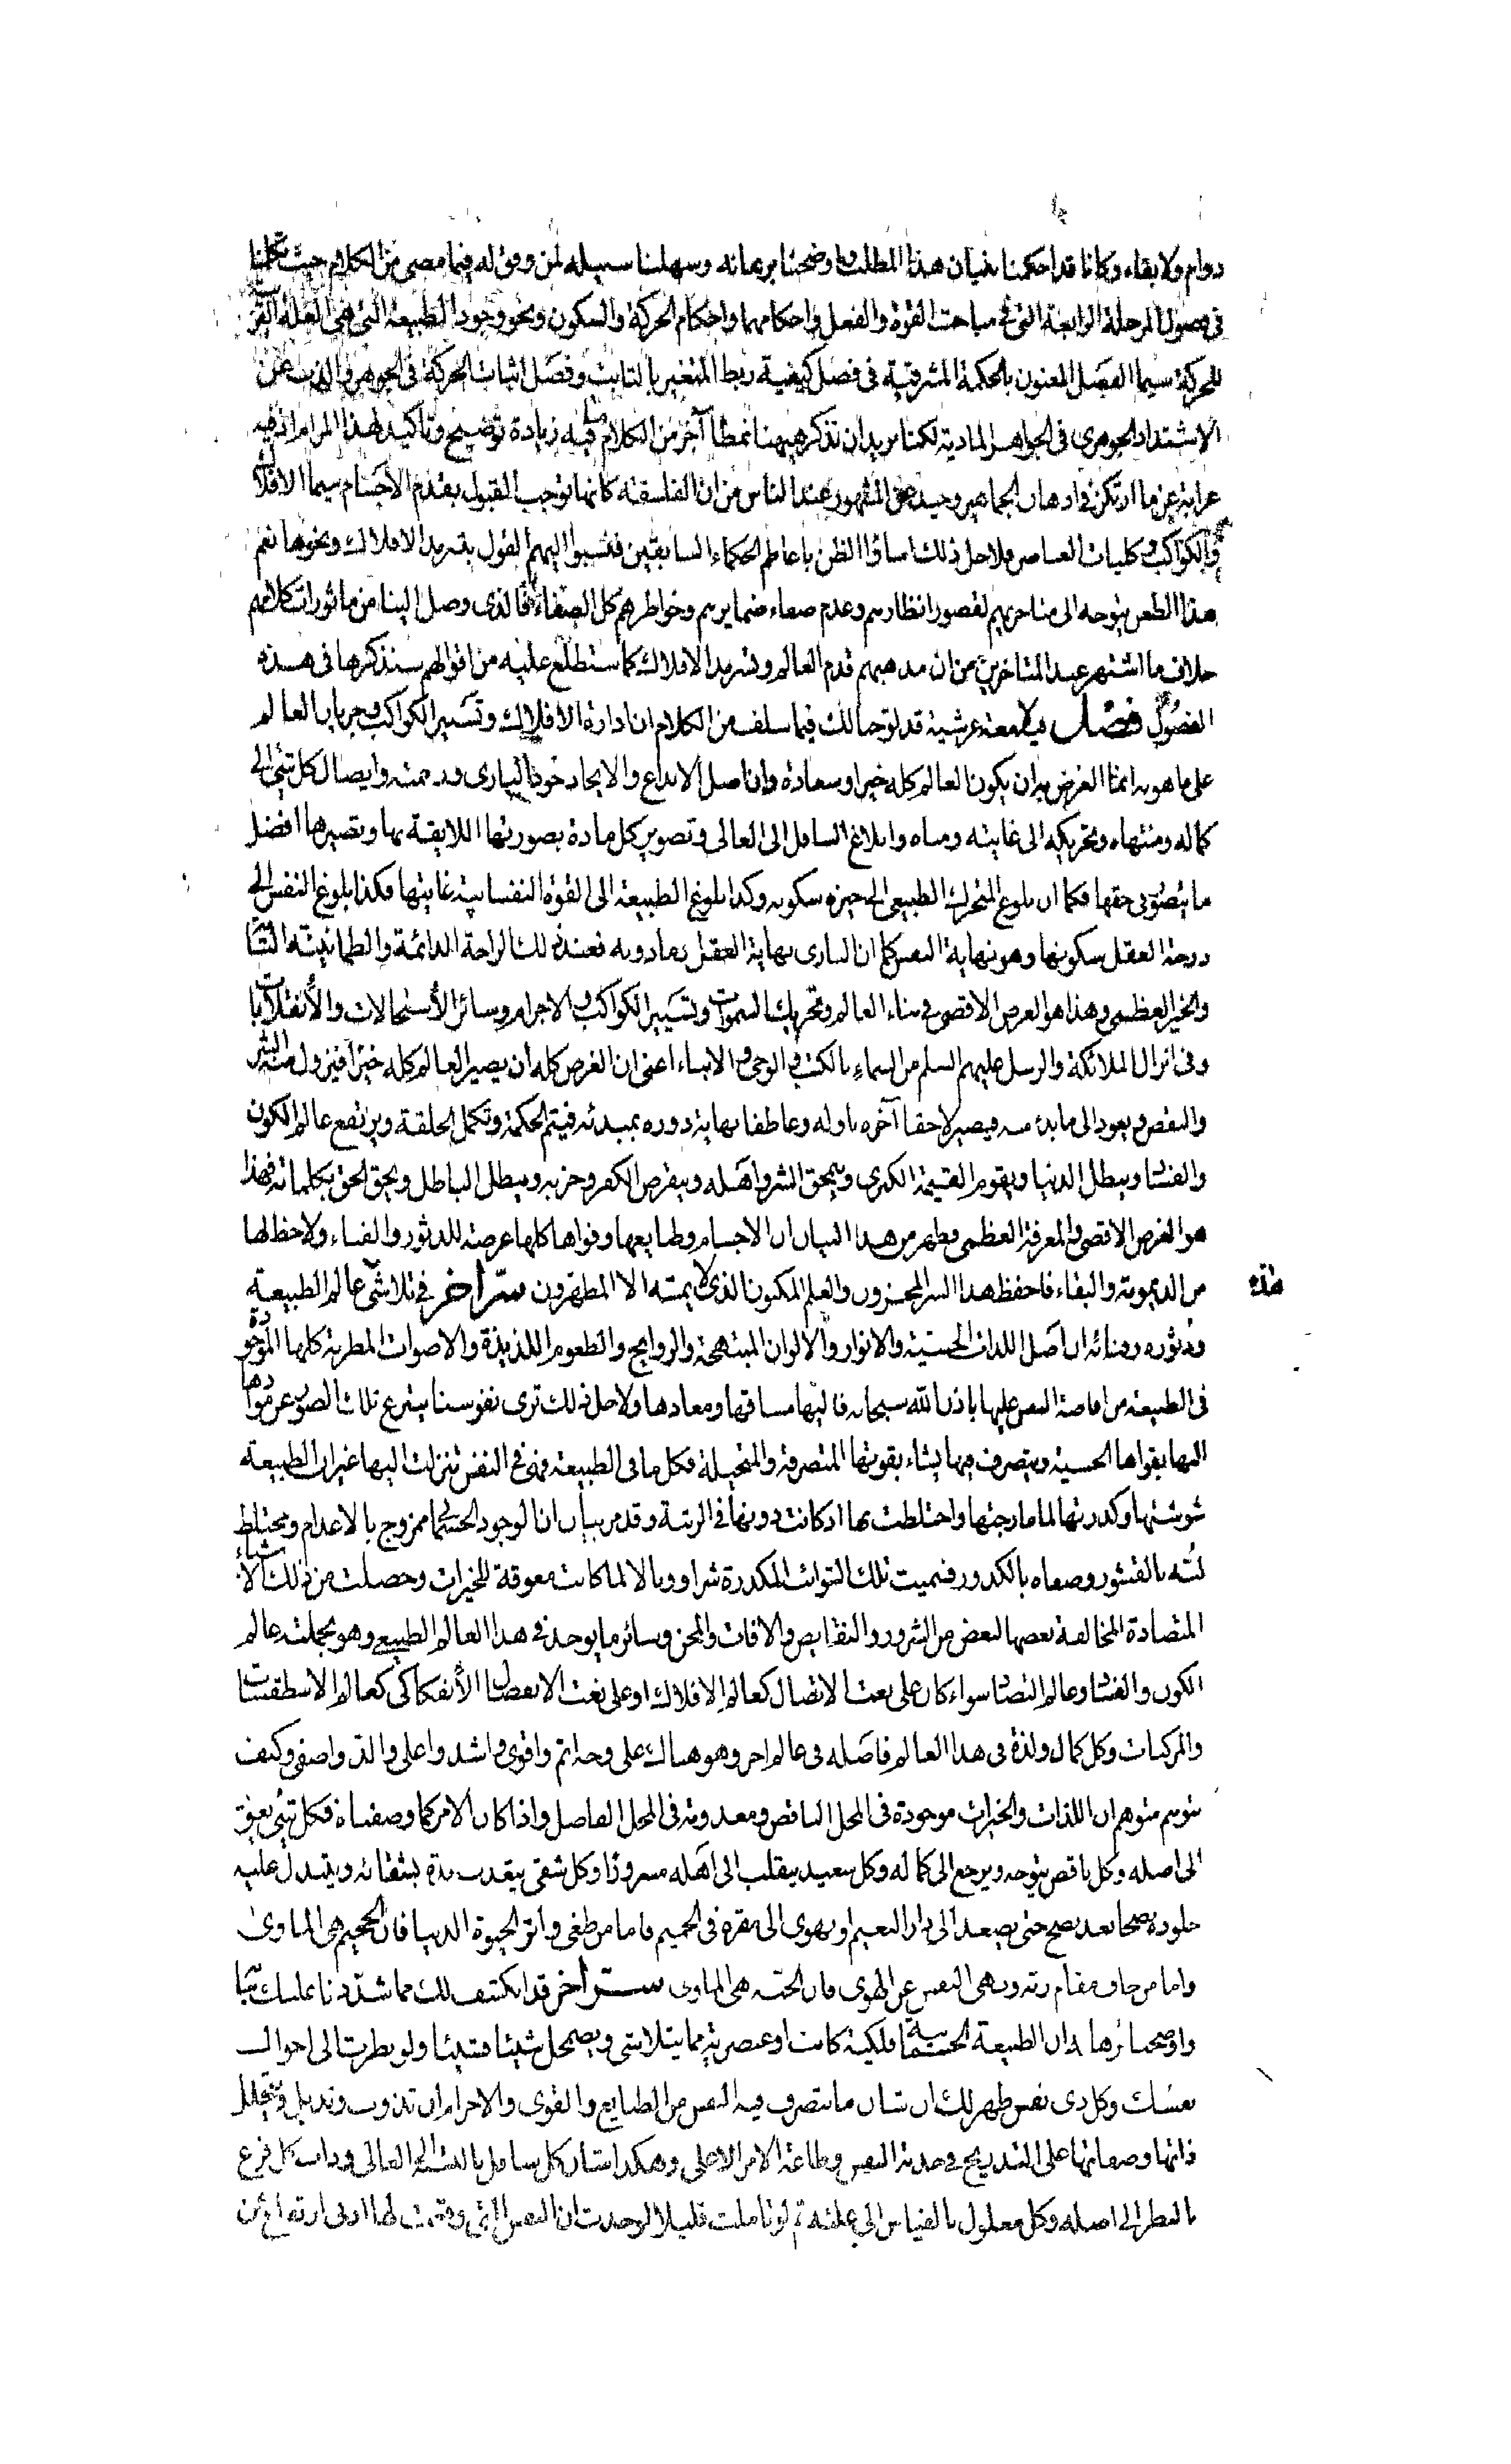 دوام ولا بقاء وكانا قد احكمنا بنيان هذا المطلب واوضحنا برهانه وسهلنا سبيله لمن وفق له فيما مضى من الكلام حيث تكلمنا
فى فصول المرحلة الرابعة التى فى مباحث القوة والفعل واحكامهما واحكام الحركة والسكون ونحو وجود الطبيعة التى هى العلة القريبة
للحركة سيما الفصل المعنون بالحكمة المشرقية فى فصل كيفية ربط المتغير بالثابت وفصل اثبات الحركة فى الجوهر والذب عن
الاشتداد الجوهرى فى الجواهر المادية لكنا نريد ان نذكر هيهنا نمطا آخر من الكلام فيه زيادة توضيح وتأكيد لهذا المرام اذ فيه
غرابة عن ما ارتكز فى اذهان الجماهير وحيد عن المشهور عند الناس من ان الفلسفة كانها توجب القول بقدم الاجسام سيما الافلاك
والكواكب وكليات العناصر ولاجل ذلك اساؤا الظن باعاظم الحكماء السابقين فنسبوا اليهم القول بتسرمد الافلاك ونحوها نعم
هذا الطعن يتوجه الى متاخريهم لقصور انظارهم وعدم صفاء ضمايرهم وخواطرهم كل الصفاء فالذى وصل الينا من ماثورات كلامهم
خلاف ما اشتهر عند المتاخرين من ان مذهبهم قدم العالم وتسرمد الافلاك كما ستطلع عليه من اقوالهم سنذكرها فى هذه
الفصول فصل فى لامعة عرشية قد لوحنا لك فيما سلف من الكلام ان ادارة الافلاك وتسيير الكواكب وجريان العالم
على ما هو به انما الغرض منه ان يكون العالم كله خيرا وسعادة وان اصل الابداع والايجاد جود البارى ورحمته وايصال كل شئ الى
كماله ومنتهاه وتحريكه الى غايته ومناه وابلاغ السافل الى العالى وتصوير كل مادة بصورتها اللايقة بها وتصييرها افضل
ما يتصور فى حقها فكما ان بلوغ المتحرك الطبيعى الى حيزه سكونه وكذا بلوغ الطبيعة الى القوة النفسانية غايتها فكذا بلوغ النفس الى
درجة العقل سكونها وهو نهاية النفس كما ان البارى نهاية العقل وما دونه فعند ذلك الراحة الدائمة والطمانينة التامة
والخير العظمى وهذا هو الغرض الاقصى فى بناء العالم وتحريك السموات وتسيير الكواكب والاجرام وسائر الأستحالات والأنقلابات
وفى انزال الملائكة والرسل عليهم السلم من السماء بالكتب والوحى والانباء اعنى ان الغرض كله أن يصير العالم كله خيرا فيزول منه الشر
والنقص ويعود الى ما بدئ منه فيصير لاحقا آخره باوله وعاطفا نهاية دوره بمبدئه فيتم الحكمة وتكمل الخلقة ويرتفع عالم الكون
والفساد ويبطل الدنيا ويقوم القيمة الكبرى ويمحق الشر واهله وينقرض الكفر وحزبه ويبطل الباطل ويحق الحق بكلماته فهذا
هو الغرض الاقصى والمعرفة العظمى وظهر من هذا البيان ان الاجسام وطبايعها وقواها كلها عرضة للدثور والفناء ولا حظ لها
من الديمومة والبقاء فاحفظ هذا السر المخزون والعلم المكنون الذى لا يمسه الا المطهرون سر آخر فى تلاشى عالم الطبيعة
هذه
ودثوره وفنائه ان اصل اللذات الحسية والانوار والالوان المبتهجة والروايح والطعوم اللذيذة والاصوات المطربة كلها الموجودة
فى الطبيعة من افاضة النفس عليها باذن الله سبحانه فاليها مساقها ومعادها ولاجل ذلك ترى نفوسنا ينتزع تلك الصور عن موادها
اليها بقواها الحسية ويتصرف فيها يشاء بقوتها المتصرفة والمتخيلة فكل ما فى الطبيعة فهى فى النفس تنزلت اليها غير ان الطبيعة
شوشتها وكدرتها لما مازجتها واختلطت بها اذ كانت دونها فى الرتبة وقد مر بيان ان الوجود الجسمانى ممزوج بالاعدام ومختلط
لبه بالقشور وصفاه بالكدور فسميت تلك الشوائب المكدرة شرا ووبالا لما كانت معوقة للخيرات وحصلت من ذلك الاشياء
المتضادة المخالفة بعضها لبعض من الشرور والنقايص والافات والمحن وسائر ما يوجد فى هذا العالم الطبيعى وهو بجملته عالم
الكون والفساد وعالم التضاد سواء كان على نعت الاتصال كعالم الافلاك او على نعت الانفصال الأنفكاكى كعالم الاسطقسات
والمركبات وكل كمال ولذة فى هذا العالم فاصله فى عالم اخر وهو هناك على وجه اتم واقوى واشد واعلى والذ واصفى وكيف
يتوهم متوهم ان اللذات والخيرات موجودة فى المحل الناقص ومعدومة فى المحل الفاضل واذا كان الامر كما وصفناه فكل شئ يعود
الى اصله وكل ناقص يتوجه ويرجع الى كماله وكل سعيد ينقلب الى اهله مسرورا وكل شقى يتعذب مدة بشقائه ويتبدل عليه
جلوده نضجا بعد نضج حتى يصعد الى دار النعيم او يهوى الى مقره فى الجحيم فاما من طغى واثر الحيوة الدنيا فان الجحيم هى الماوى
واما من خاف مقام ربه ونهى النفس عن الهوى فان الجنة هى الماوى ستر آخر قد انكشف لك مما شددنا عليك بنيانا
واوضحنا برهانا ان الطبيعة الجسمانية فلكية كانت او عنصرية مما يتلاشى ويضمحل شيئا فشيئا ولو نظرت الى احوال
نفسك وكل ذى نفس ظهر لك ان شان ما يتصرف فيه النفس من الطبايع والقوى والاجرام ان تذوب وتذبل ويتحلل
ذاتها وصفاتها على التدريج فى خدمة النفس وطاعة الامر الاعلى وهكذا شان كل سافل بالنسبة الى العالى وداب كل فرع
بالنظر الى اصله وكل معلول بالقياس الى علته ثم لو تاملت قليلا لوجدت ان النفس التى وقعت لها ادنى ارتفاع عن